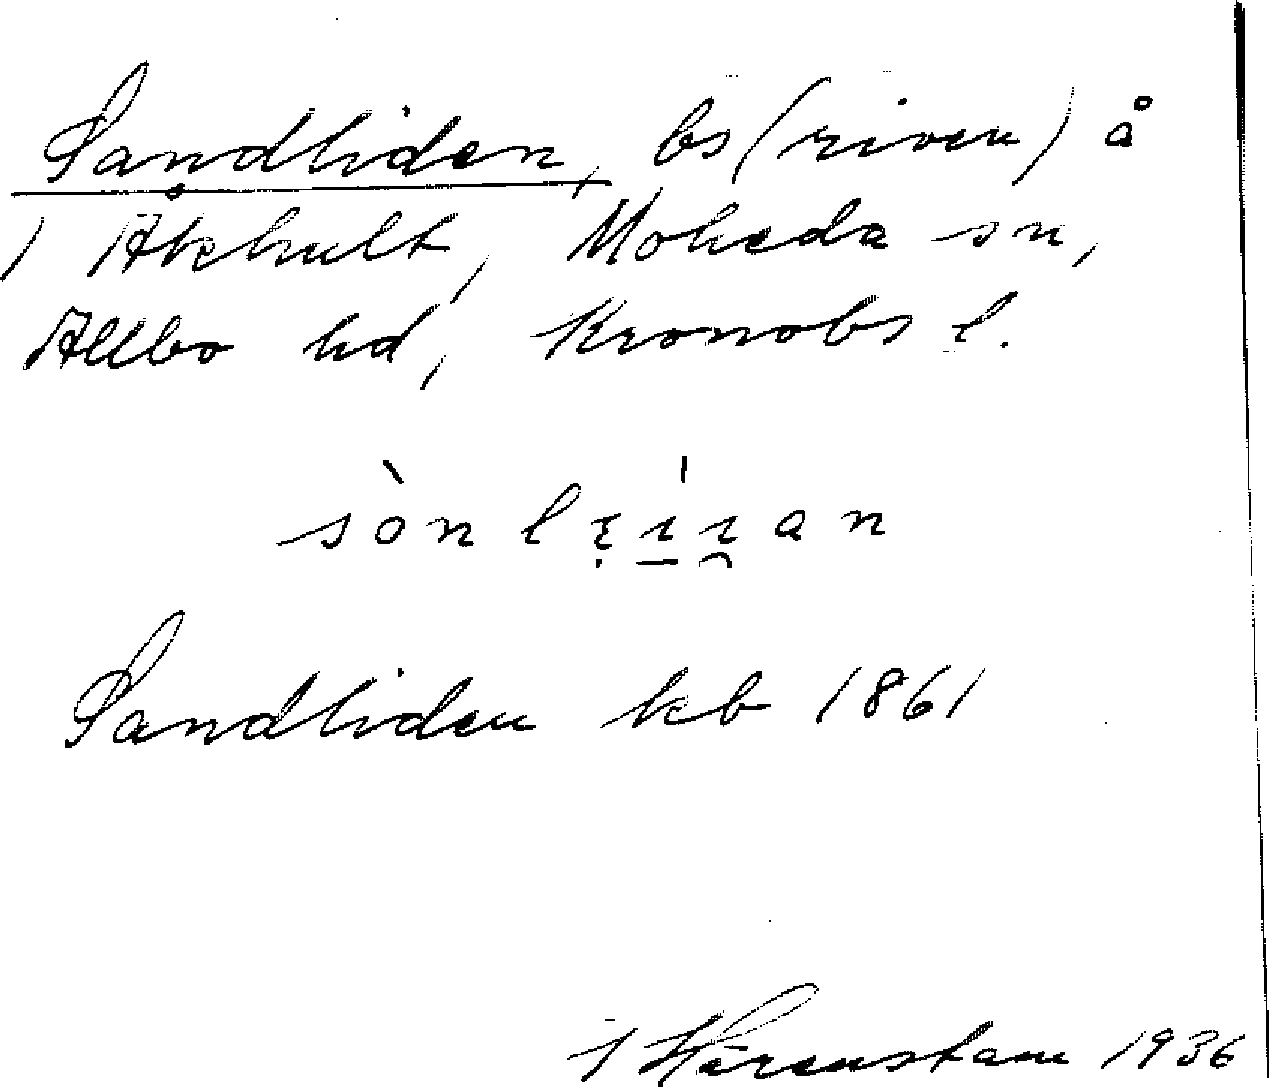 Sandliden, bs (riven) å
/ Åkhult, Moheda sn,
Allbo hd, Kronobs l.
Sandliden kb 1861
J Härenstam 1936